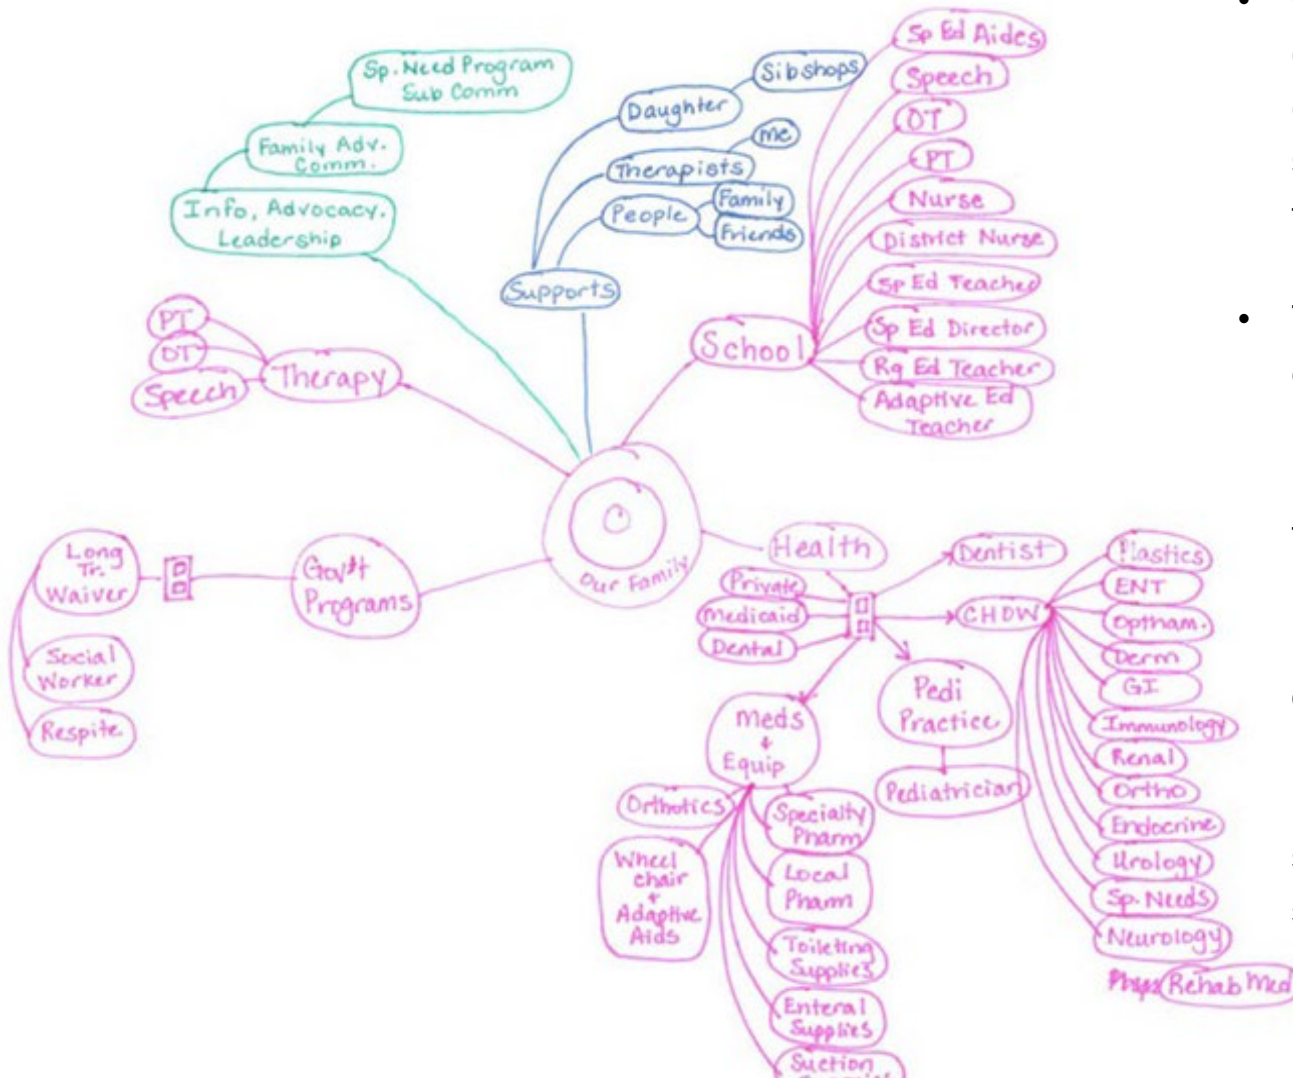 Sp. Need Program
Sub Comm
Family Adv.
Comm.
Info, Advocacy.
Leadership
Sibshops
Daughter
me
Therapists
People
Family
Friends
Supports
Sp Ed Aides
Speech
OT
PT
Nurse
District Nurse
Sp Ed Teacher
Sp Ed Director
Rg Ed Teacher
Adaptive Ed
Teacher
School
PT
OT
Speech
Therapy
Our Family
Long
Tr.
Waiver
Social
Worker
Respite
Gov't
Programs
Health
Private
Medicaid
Dental
Dentist
CHOW
Plastics
ENT
Optham.
Derm
GI
Immunology
Renal
Ortho
Endocrine
Urology
Sp. Needs
Neurology
Rehab Med
Pedi
Practice
Pediatrician
Meds
+
Equip
Orthotics
Wheel
chair
+
Adaptive
Aids
Specialty
Pharm
Local
Pharm
Toileting
Supplies
Enteral
Supplies
Suction